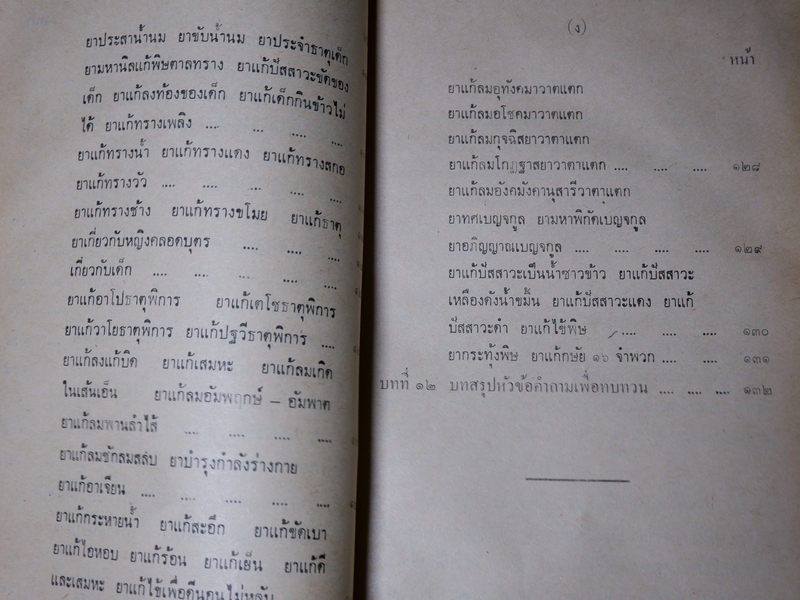 ยาประสาน้ำนม ยาขับน้ำนม ยาประจำธาตุเด็ก
ยามหานิลแก้พิษตาลทราง ยาแก้ปัสสาวะขัดของ
เด็ก ยาแก้ลงท้องของเด็ก ยาแก้เด็กกินข้าวไม่
ได้ ยาแก้ทรางเพลิง .... .... .... ....
ยาแก้ทรางน้ำ ยาแก้ทรางแดง ยาแก้ทรางสกอ
ยาแก้ทรางวัว .... .... .... .... ....
ยาแก้ทรางช้าง ยาแก้ทรางขโมย ยาแก้ธาตุ
ยาเกี่ยวกับหญิงคลอดบุตร .... .... ....
เกี่ยวกับเด็ก .... .... .... .... ....
ยาแก้อาโปธาตุพิการ ยาแก้เตโชธาตุพิการ
ยาแก้วาโยธาตุพิการ ยาแก้ปฐวีธาตุพิการ ....
ยาแก้ลงแก้บิด ยาแก้เสมหะ ยาแก้ลมเกิด
ในเส้นเอ็น ยาแก้ลมอัมพฤกษ์ – อัมพาต
ยาแก้ลมพานลำไส้ .... .... .... ....
ยาแก้ลมชักลมสลบ ยาบำรุงกำลังร่างกาย
ยาแก้อาเจียน .... .... .... .... ....
ยาแก้กระหายน้ำ ยาแก้สะอึก ยาแก้ขัดเบา
ยาแก้ไอหอบ ยาแก้ร้อน ยาแก้เย็น ยาแก้ดี
และเสมหะ ยาแก้ไข้เพื่อดีนอนไม่หลับ
(ง)
หน้า
ยาแก้ลมอุทังคมาวาตแตก
ยาแก้ลมอโธคมาวาตแตก
ยาแก้ลมกุจฉิสยาวาตาแตก
ยาแก้ลมโกฏฐาสยาวาตแตก .... .... .... ๑๒๘
ยาแก้ลมอังคมังคานุสารีวาตแตก
ยาทศเบญจกูล ยามหาพิกัดเบญจกูล
ยาอภิญญาณเบญจกูล .... .... .... .... ๑๒๙
ยาแก้ปัสสาวะเป็นน้ำซาวข้าว ยาแก้ปัสสาวะ
เหลืองดังน้ำขมิ้น ยาแก้ปัสสาวะแดง ยาแก้
ปัสสาวะดำ ยาแก้ไข้พิษ .... .... .... ๑๓๐
ยากระทุ้งพิษ ยาแก้กษัย ๑๖ จำพวก .... .... ๑๓๑
บทที่ ๑๒ บทสรุปหัวข้อคำถามเพื่อทบทวน .... .... ... ๑๓๒